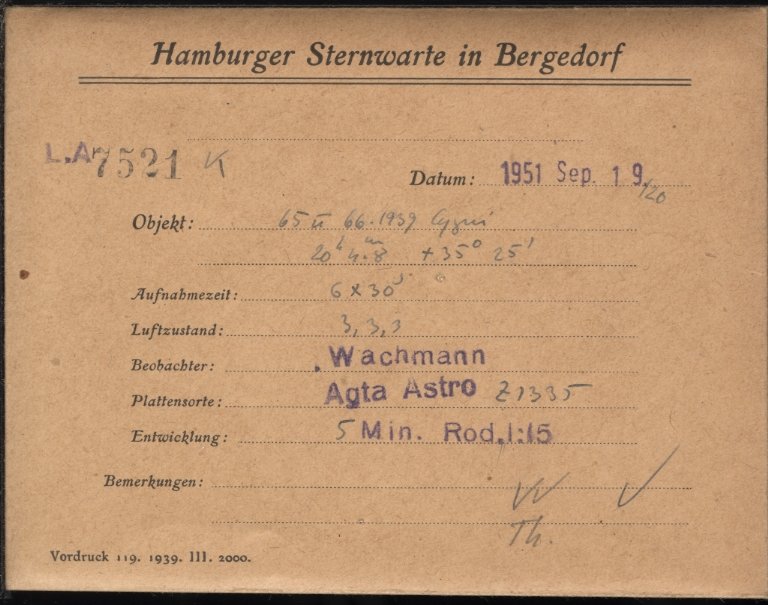 Hamburger Sternwarte in Bergedorf
L.A 7521 K
Datum: 1951 Sep. 19./20
Objekt: 65 u 66.1939 Cygni
20h 4m.8 + 35° 25'
Aufnahmezeit: 6 x 30s
Luftzustand: 3, 3, 3
Beobachter: Wachmann
Plattensorte: Agfa Astro Z1335
Entwicklung: 5 Min. Rod. 1:15
Bemerkungen:
Th.
Vordruck 119. 1939. III. 2000.